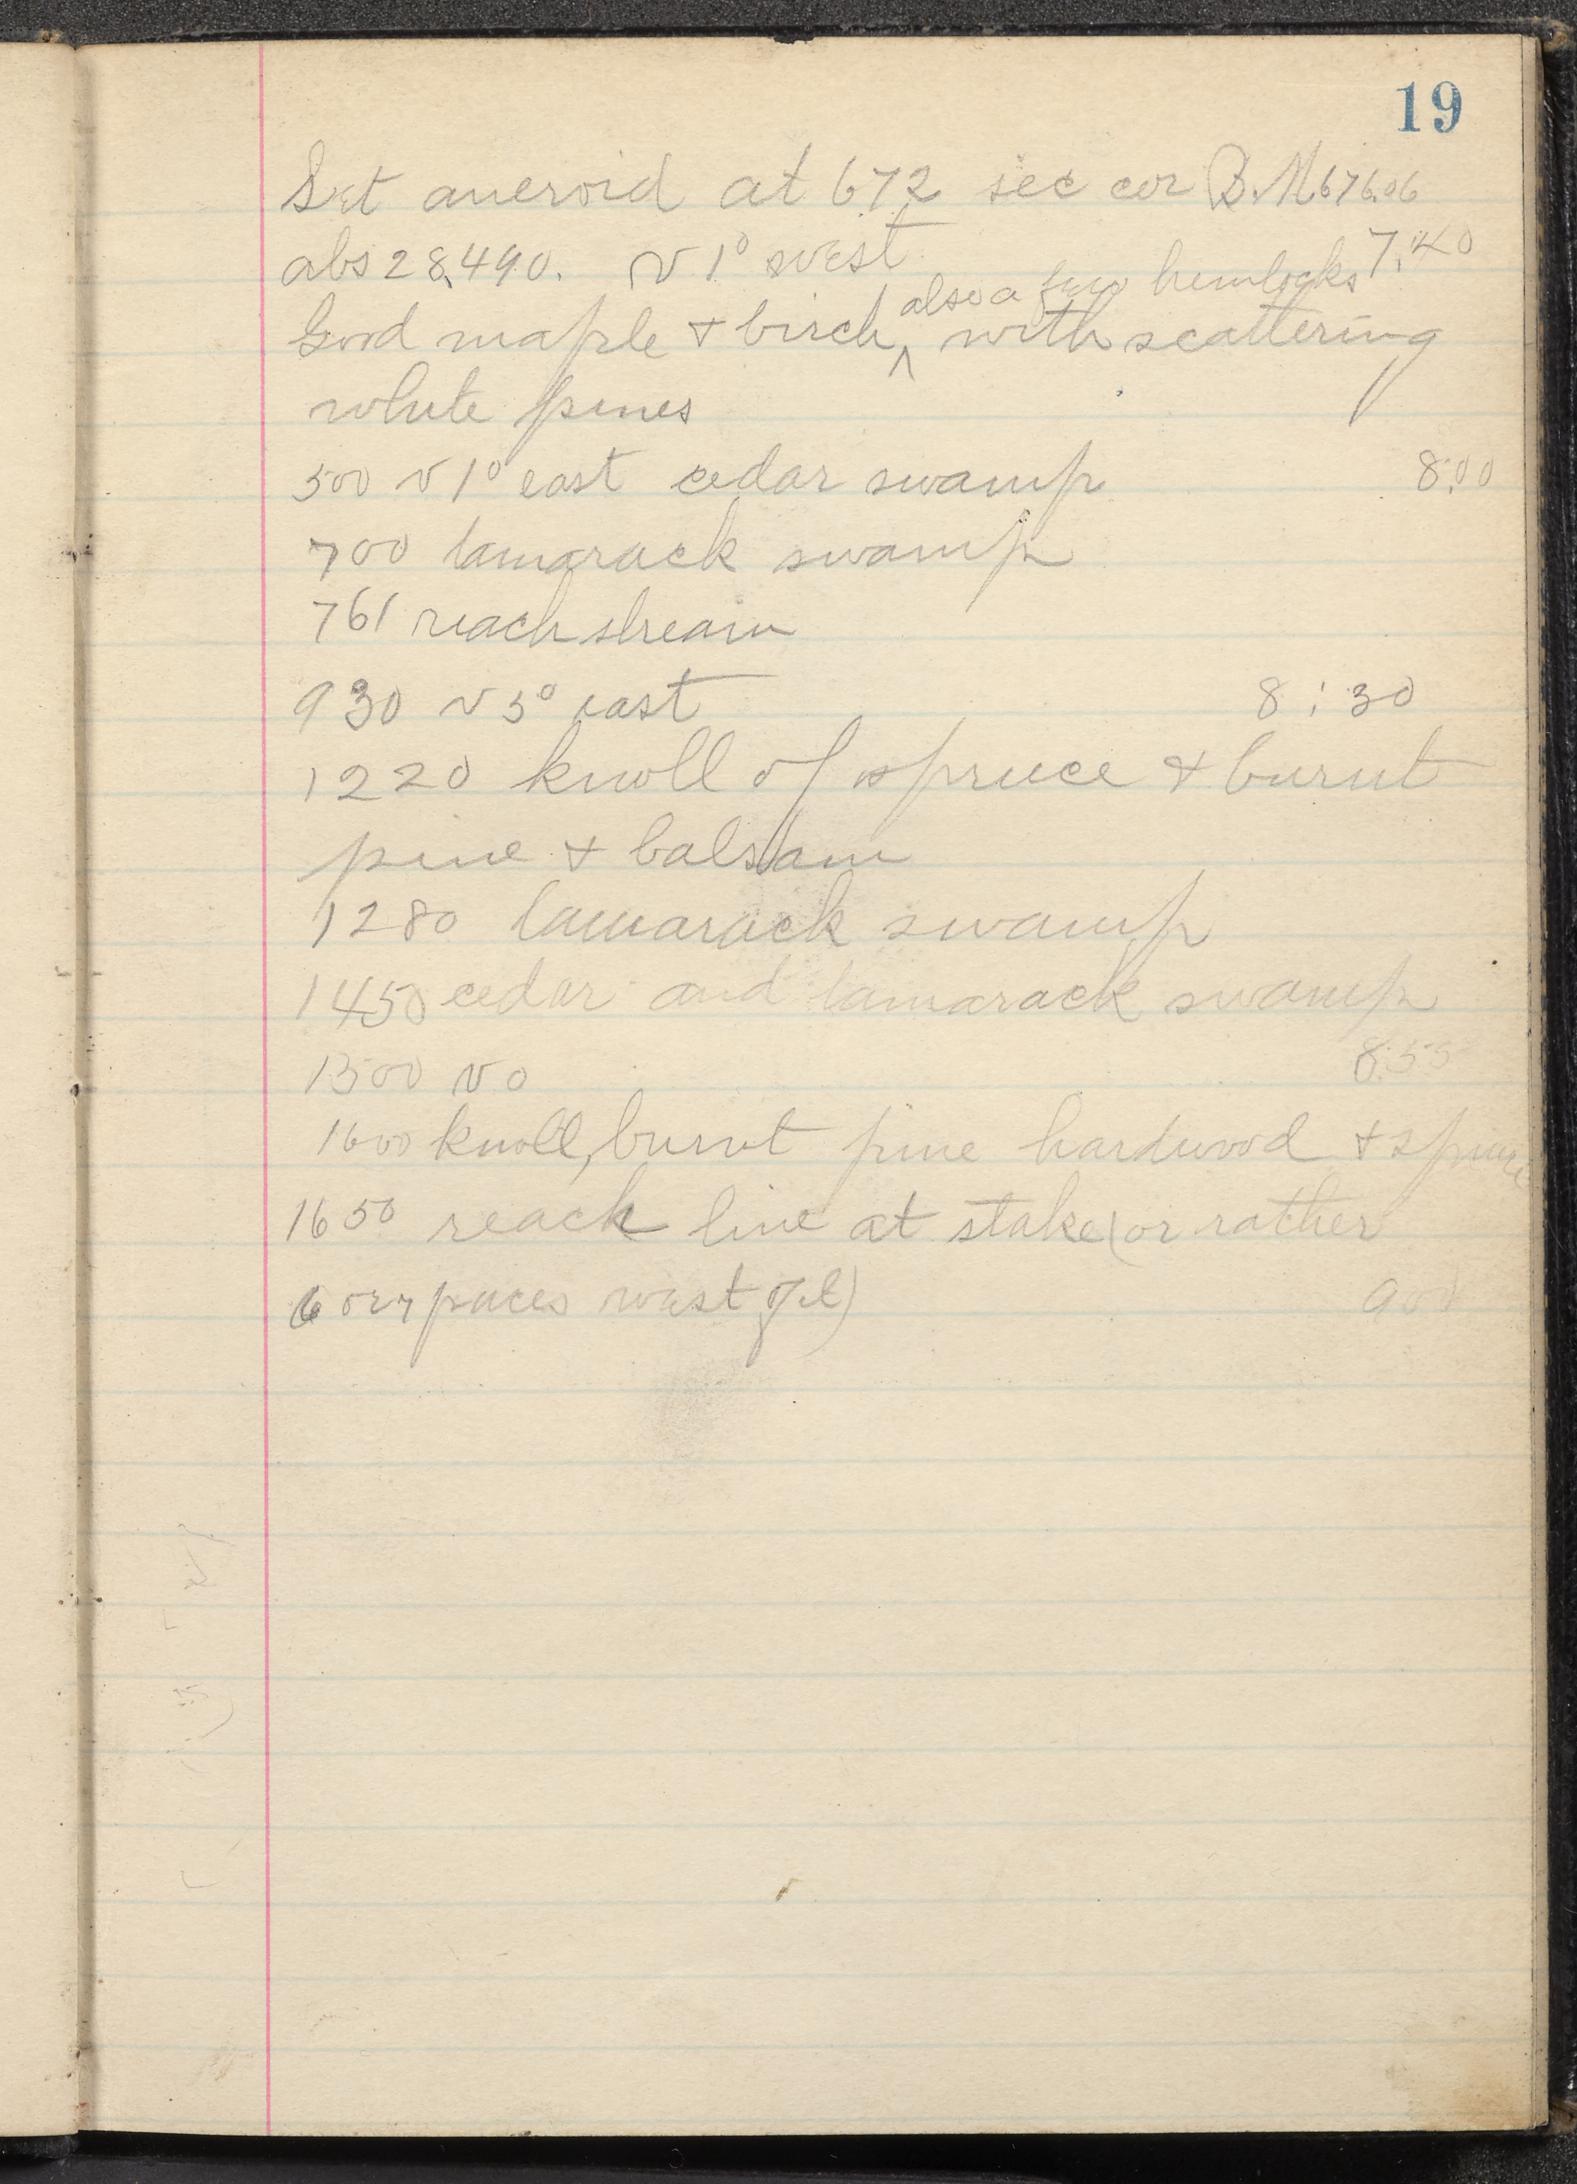 19
Set aneroid at 672 sec cor B.M 676.06
abs 28,490. V 1° west 7:40
also a few hemlocks
Good maple + birch, ^ with scattering
white pines
500 V 1° east cedar swamp 8:00
700 tamarack swamp
761 reach stream
930 V 5° east 8:30
1220 knoll of spruce + burnt
pine + balsam
1280 tamarack swamp
1450 cedar and tamarack swamp
1500 V 0 8:55
1600 knoll, burnt pine hardwood + spruce
1650 reach line at stake (or rather
6 or 7 paces west of it)